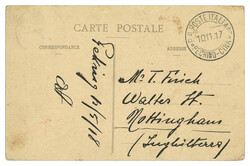 CARTE POSTALE
CORRESPONDANCE
ADRESSE
R. POSTE ITALIANE
10.11.17
PECHINO-CINA
Peking 10/5/18
Mr. T. Finch
Walter St.
Nottingham
(Inghilterra)